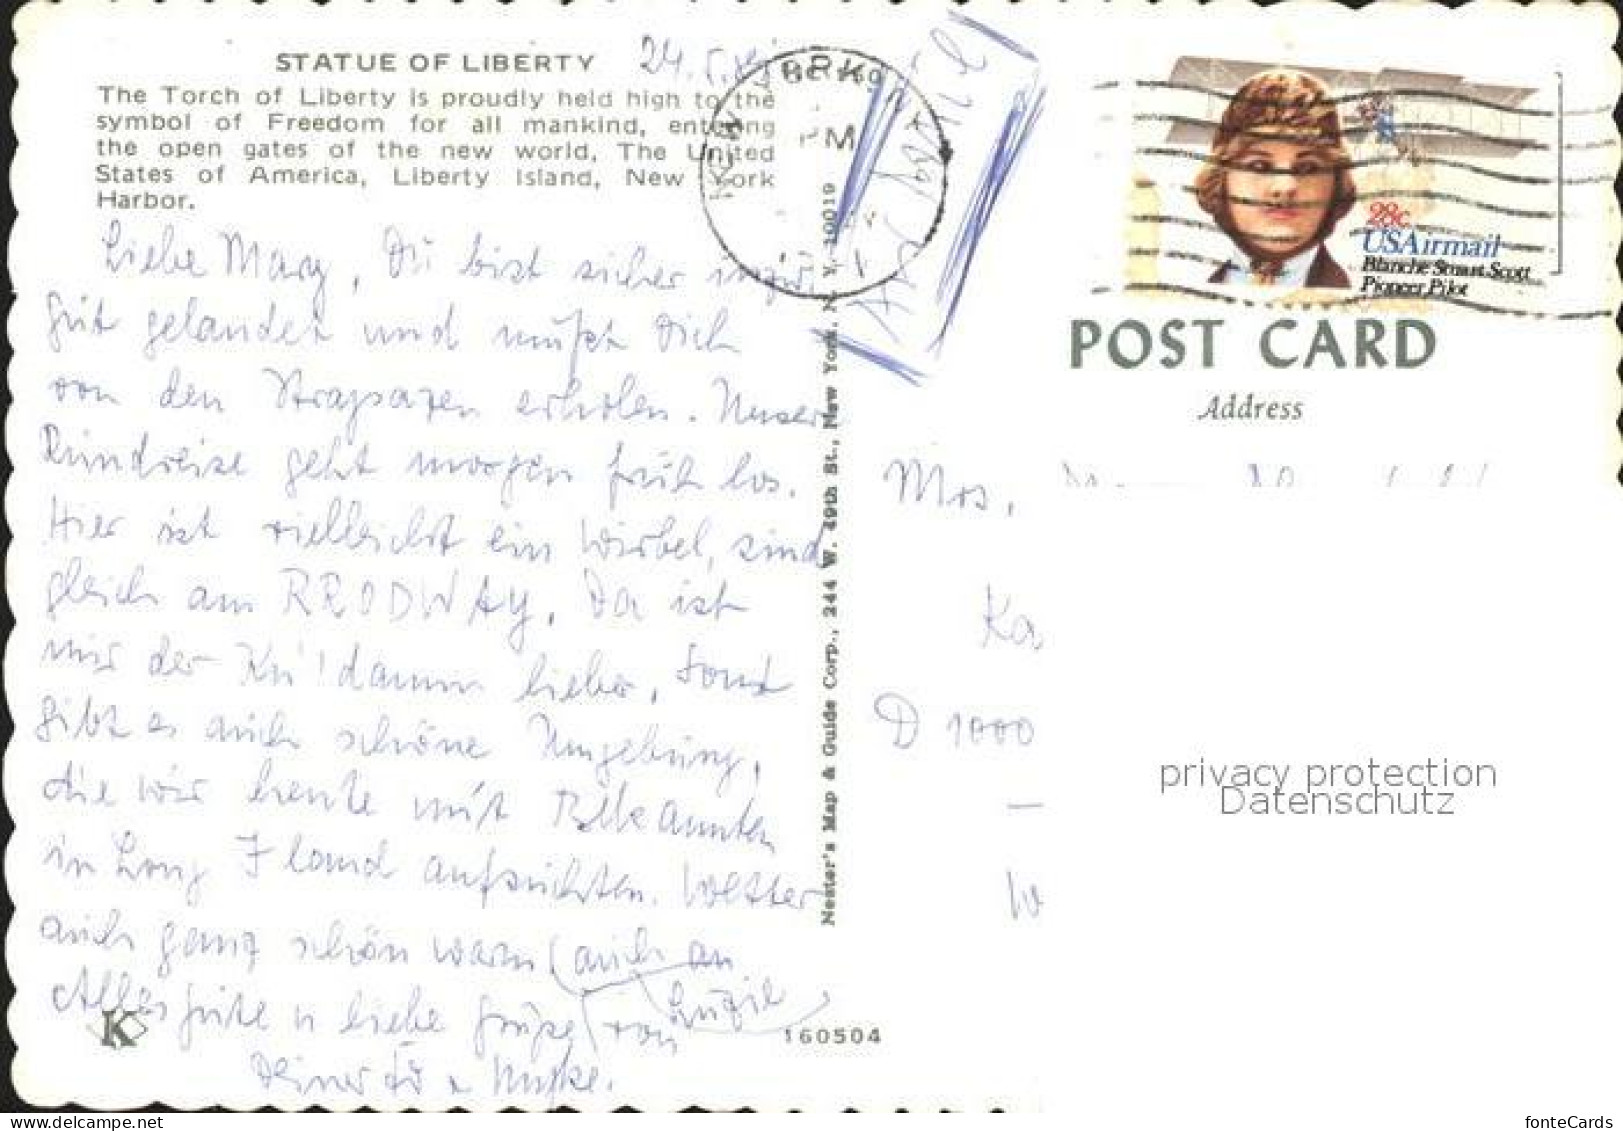 STATUE OF LIBERTY
24.5.
The Torch of Liberty is proudly held high to the
symbol of Freedom for all mankind, entering
the open gates of the new world, The United
States of America, Liberty Island, New York
Harbor.
Liebe Mary, Du bist sicher
gut gelandet und mußt Dich
von den Strapazen erholen. Unser
Rundreise geht morgen früh los.
Hier ist vielleicht ein Wirbel, sind
gleich am BRODWAY. Da ist
mir der Ku'damm lieber. Sonst
gibt es auch schöne Umgebung,
die wir heute mit Bekannten
in Long Iland aufsuchten. Wetter
auch ganz schön warm (auch an
Alles gute u liebe Grüße von Luzie
Deiner
160504
Nester's Map & Guide Corp., 244 W. 49th St., New York, N. Y. 10019
NEW YORK
PM
28c
USAirmail
Blanche Stuart Scott
Pioneer Pilot
POST CARD
Address
Mrs.
Ka
D 1000
W
privacy protection
Datenschutz
K
www.delcampe.net
fonteCards